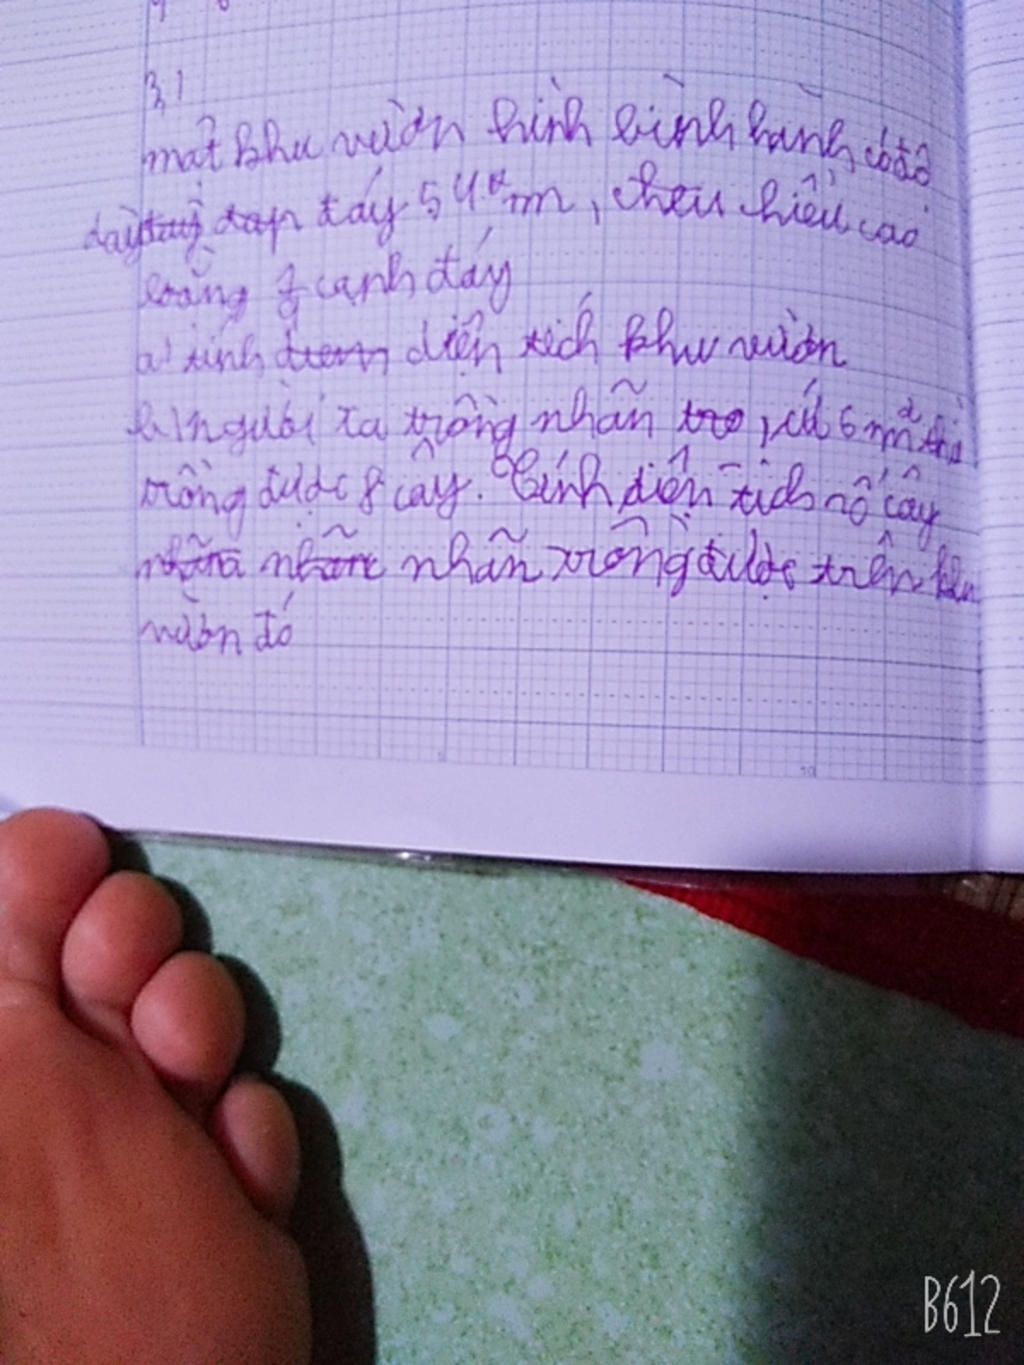 3)
một khu vườn hình bình hành có độ
dài đáy 54 m, chiều cao
bằng cạnh đáy
a) tính diện tích khu vườn
b) người ta trồng nhãn, cứ 6 m² thì
trồng được 8 cây. Tính diện tích số cây
nhãn trồng được trên khu
vườn đó
10
B612